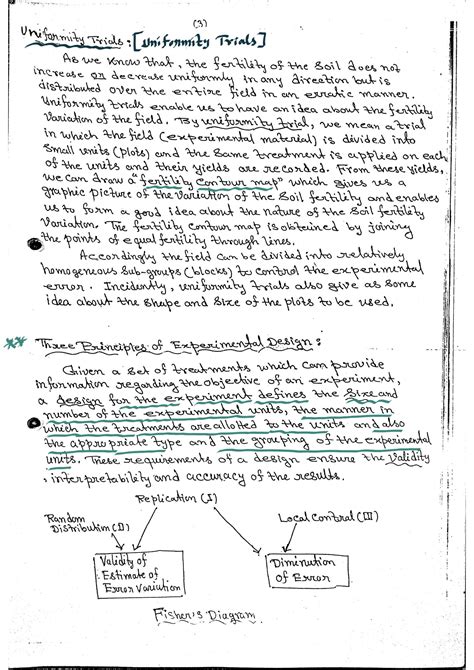 (3)
Uniformity Trials: [Uniformity Trials]
As we know that, the fertility of the soil does not
increase or decrease uniformly in any direction but is
distributed over the entire field in an erratic manner.
Uniformity trials enable us to have an idea about the fertility
Variation of the field. By uniformity trial, we mean a trial
in which the field (experimental material) is divided into
small units (plots) and the same treatment is applied on each
of the units and their yields are recorded. From these yields,
we can draw a "fertility contour map" which gives us a
graphic picture of the variation of the soil fertility and enables
us to form a good idea about the nature of the soil fertility
Variation. The fertility contour map is obtained by joining
the points of equal fertility through lines.
Accordingly the field can be divided into relatively
homogeneous sub-groups (blocks) to control the experimental
error. Incidently, uniformity trials also give as some
idea about the shape and size of the plots to be used.
** Three Principles of Experimental Design:
Given a set of treatments which can provide
information regarding the objective of an experiment,
a design for the experiment defines the size and
number of the experimental units, the manner in
which the treatments are allotted to the units and also
the appropriate type and the grouping of the experimental
units. These requirements of a design ensure the validity
, interpretability and accuracy of the results.
Replication (I)
Random
Distribution (II)
Local Control (III)
Validity of
Estimate of
Error Variation
Diminution
of Error
Fisher's Diagram